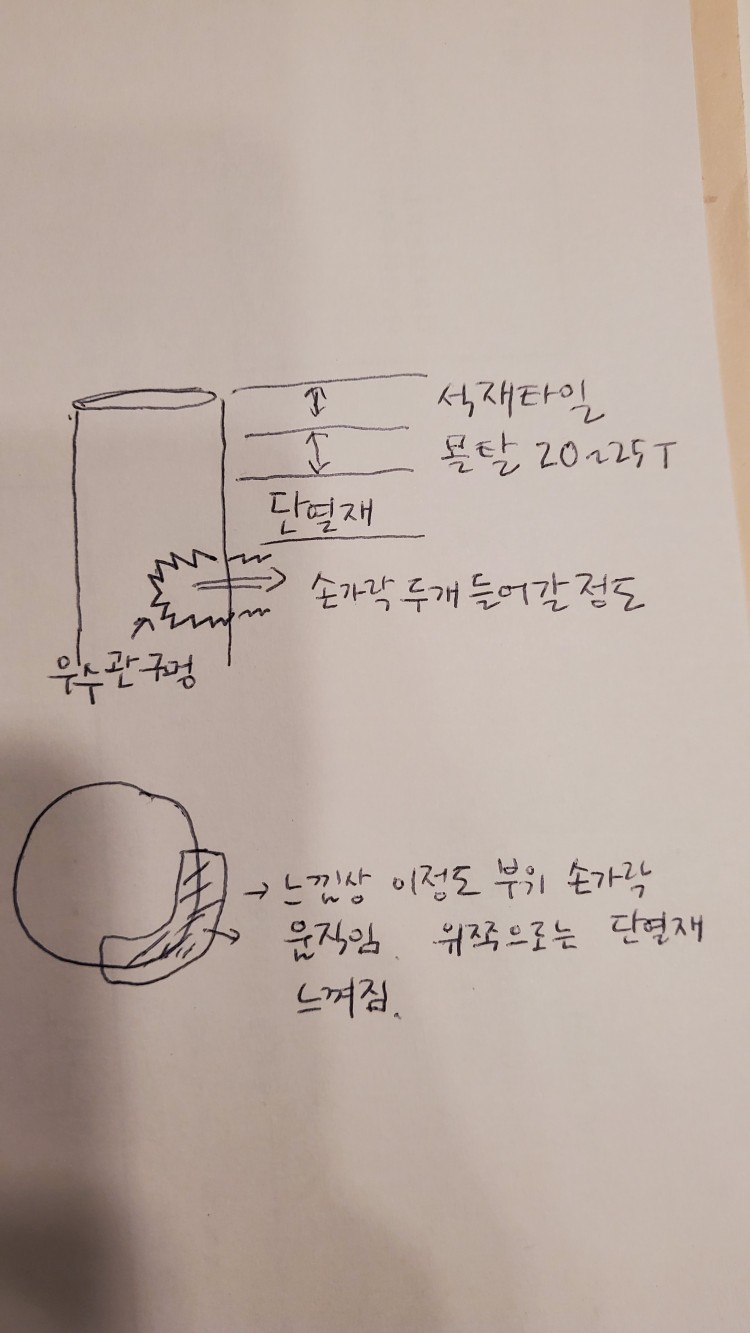 석재타일
몰탈 20~25T
단열재
손가락 두개 들어갈 정도
우수관 구멍
→ 느낌상 이정도 부위 손가락
움직임. 위쪽으로는 단열재
느껴짐.